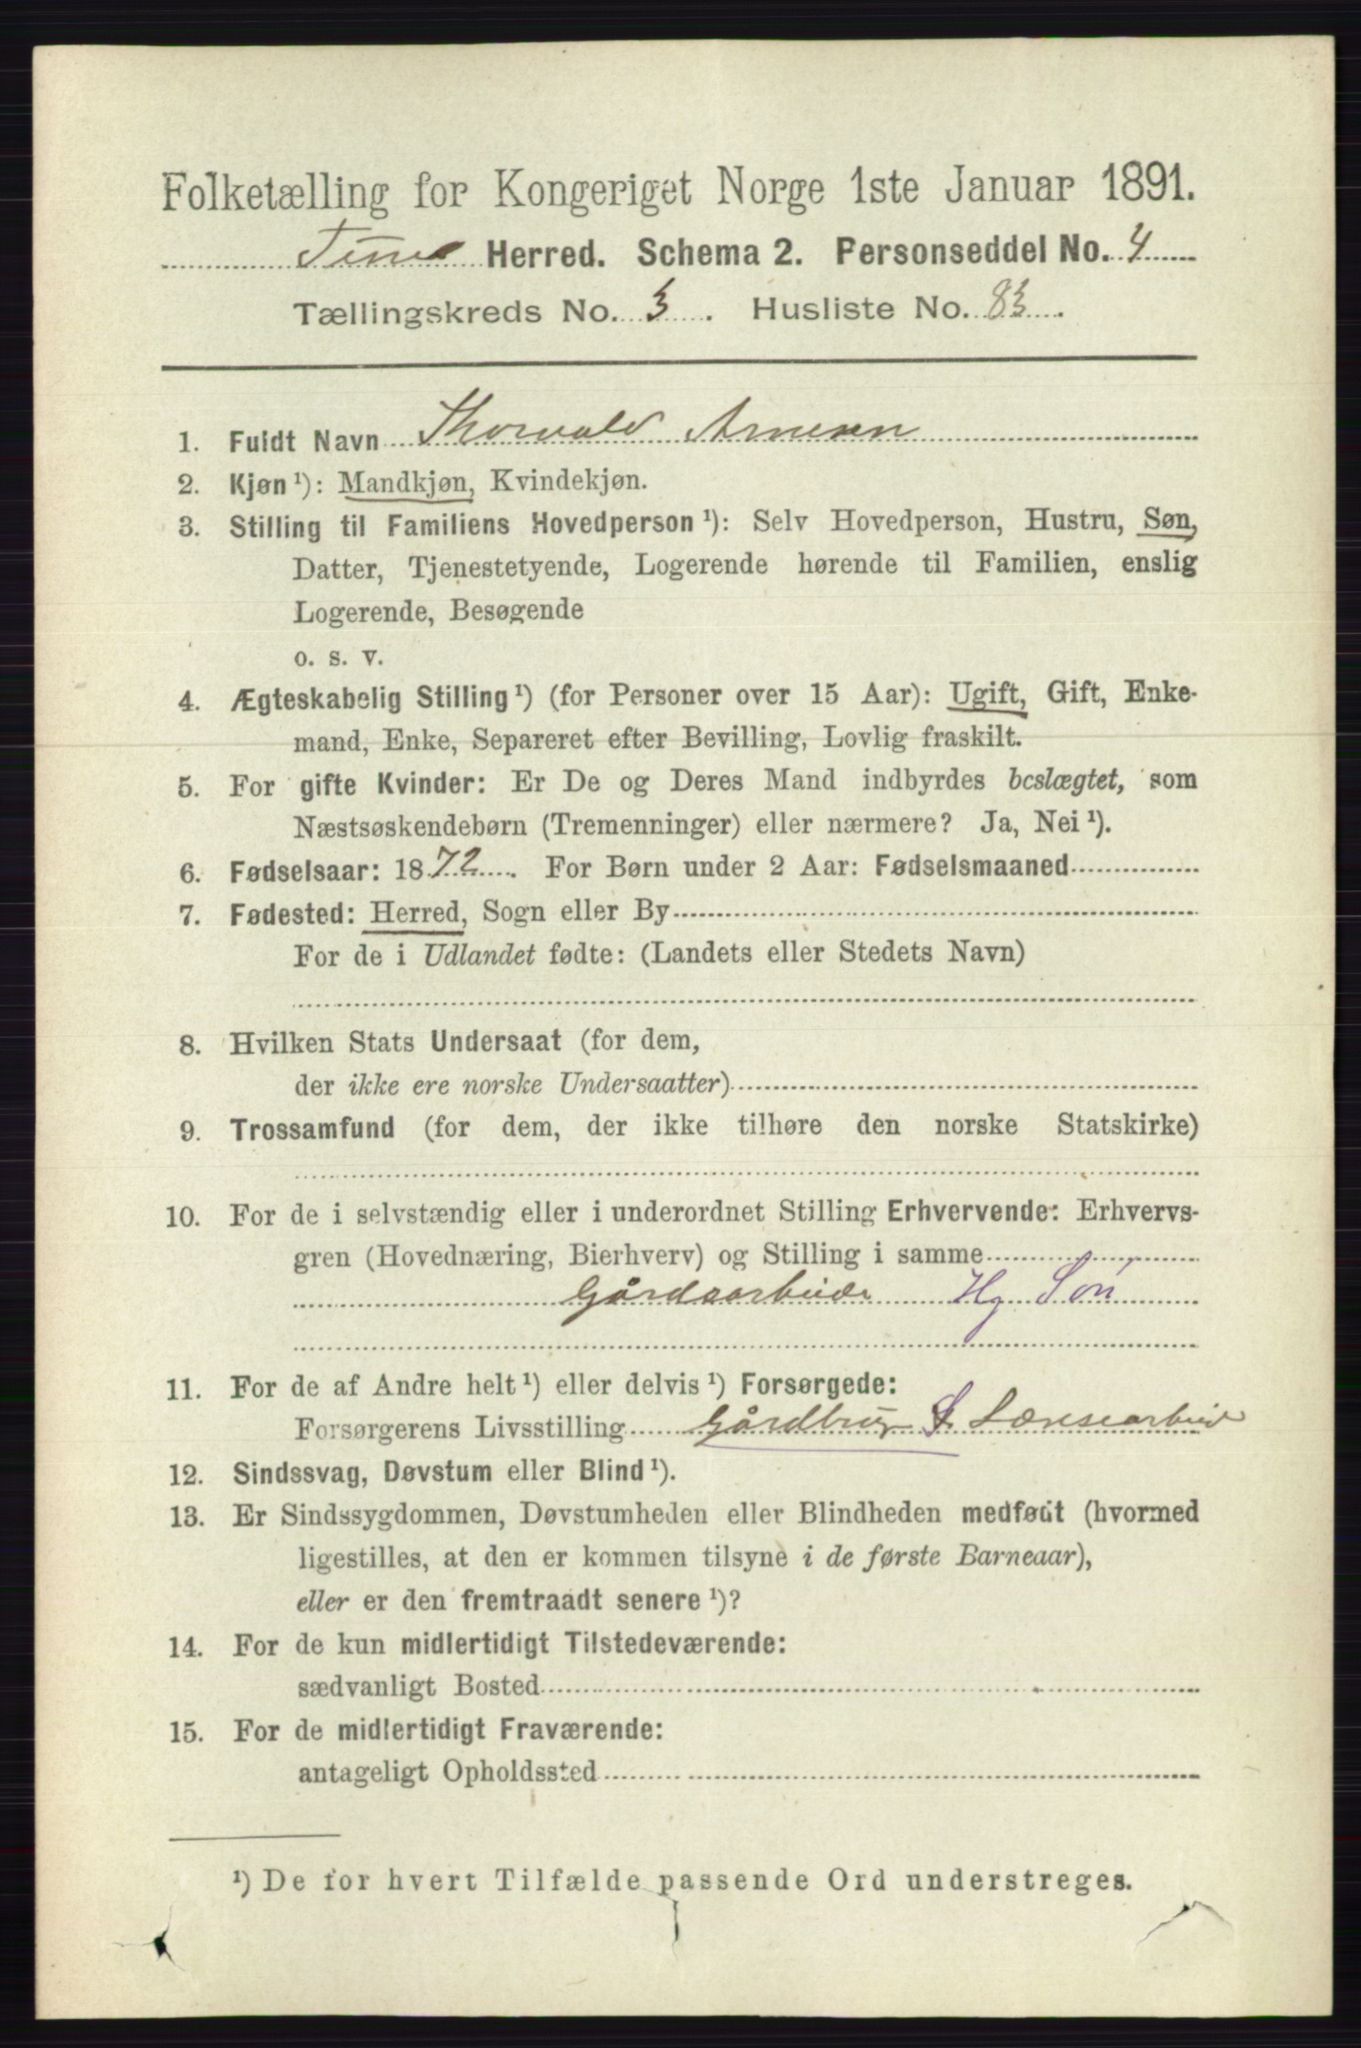 Folketælling for Kongeriget Norge 1ste Januar 1891.
Tune Herred. Schema 2. Personseddel No. 4
Tællingskreds No. 3. Husliste No. 83.
1. Fuldt Navn Thorvald Arnesen
2. Kjøn ¹): Mandkjøn, Kvindekjøn.
3. Stilling til Familiens Hovedperson ¹): Selv Hovedperson, Hustru, Søn,
Datter, Tjenestetyende, Logerende hørende til Familien, enslig
Logerende, Besøgende
o. s. v.
4. Ægteskabelig Stilling ¹) (for Personer over 15 Aar): Ugift, Gift, Enke-
mand, Enke, Separeret efter Bevilling, Lovlig fraskilt.
5. For gifte Kvinder: Er De og Deres Mand indbyrdes beslægtet, som
Næstsøskendebørn (Tremenninger) eller nærmere? Ja, Nei ¹).
6. Fødselsaar: 1872. For Børn under 2 Aar: Fødselsmaaned
7. Fødested: Herred, Sogn eller By
For de i Udlandet fødte: (Landets eller Stedets Navn)
8. Hvilken Stats Undersaat (for dem,
der ikke ere norske Undersaatter)
9. Trossamfund (for dem, der ikke tilhøre den norske Statskirke)
10. For de i selvstændig eller i underordnet Stilling Erhvervende: Erhvervs-
gren (Hovednæring, Bierhverv) og Stilling i samme
Gårdsarbeide Hg Søn
11. For de af Andre helt ¹) eller delvis ¹) Forsørgede:
Forsørgerens Livsstilling Gårdbrug S Lænsearbeide
12. Sindssvag, Døvstum eller Blind ¹).
13. Er Sindssygdommen, Døvstumheden eller Blindheden medfødt (hvormed
ligestilles, at den er kommen tilsyne i de første Barneaar),
eller er den fremtraadt senere ¹)?
14. For de kun midlertidigt Tilstedeværende:
sædvanligt Bosted
15. For de midlertidigt Fraværende:
antageligt Opholdssted
¹) De for hvert Tilfælde passende Ord understreges.